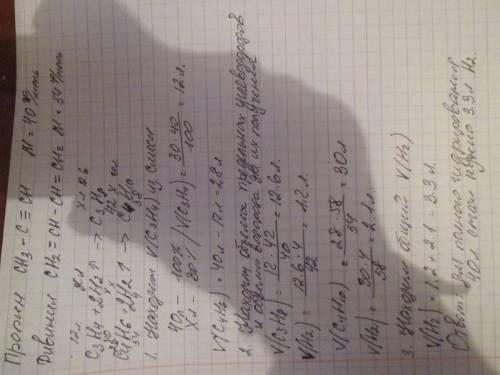 Пропин CH3 - C ≡ CH M = 40 г/моль
Дивинил CH2 = CH - CH = CH2 M = 54 г/моль
12л
C3H4 + 2H2↑ → C3H8
C4H6 + 2H2↑ → C4H10
1. Находим V(C3H4) из смеси
40л - 100%
Xл - 30% / V(C3H4) = 30·40/100 = 12л.
V(C4H6) = 40л - 12л = 28л
2. Находим объемы предельных углеводородов
и объемы водорода для их получения
V(C3H8) = 12·42/40 = 12.6л.
V(H2) = 12.6·4/42 = 1.2л.
V(C4H10) = 28·58/54 = 30л
V(H2) = 30·4/58 = 2.1л.
3. Находим общий V(H2)
V(H2) = 1.2 + 2.1 = 3.3л.
Ответ: для полного гидрирования
40л смеси нужно 3.3л H2.